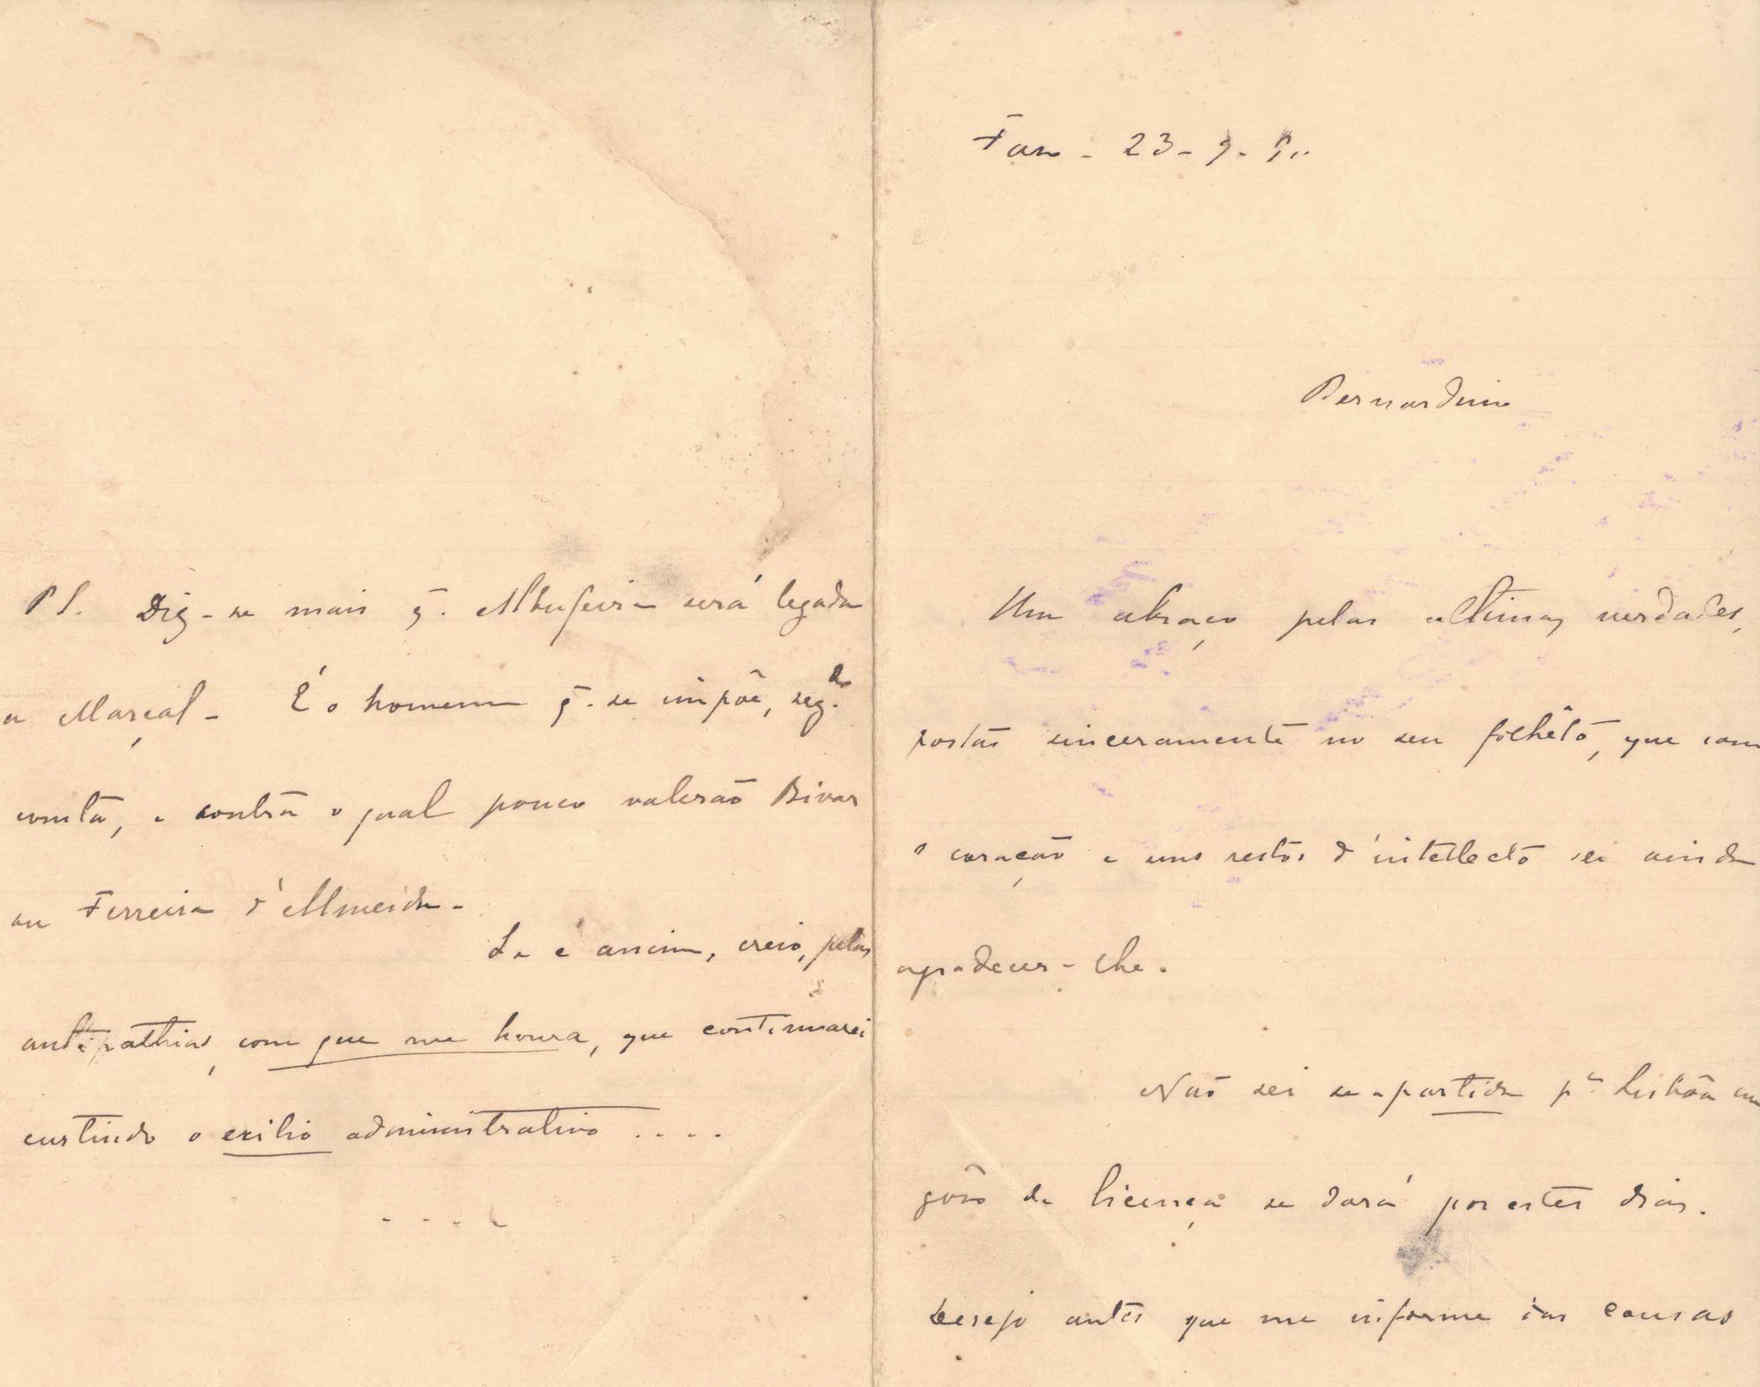 Faro - 23 - 9 -
Bernardino
Um abraço pelas ultimas verdades,
postas sinceramente no seu folhêto, que com
o coração e uns restos d'intellecto sei ainda
agradecer-lhe.
Não sei se a partida pª Lisbôa em
gôso de licença se dará por estes dias.
Desejo antes que me informe das cousas
PS. Diz-se mais q. Albufeira será legada
a Marçal - É o homem q. se impõe, seg.do
consta, e contra o qual pouco valerão Bivar
ou Ferreira d'Almeida -
Se é assim, creio, pelas
antipathias, com que me honra, que continuarei
curtindo o exilio administrativo ....
....